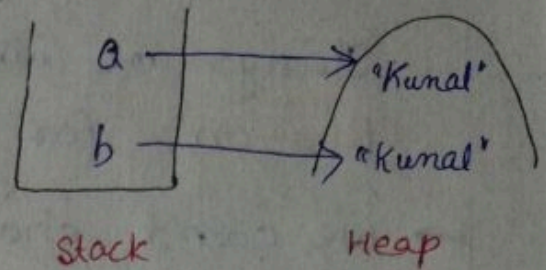 a "Kunal"
b "Kunal"
Stack Heap